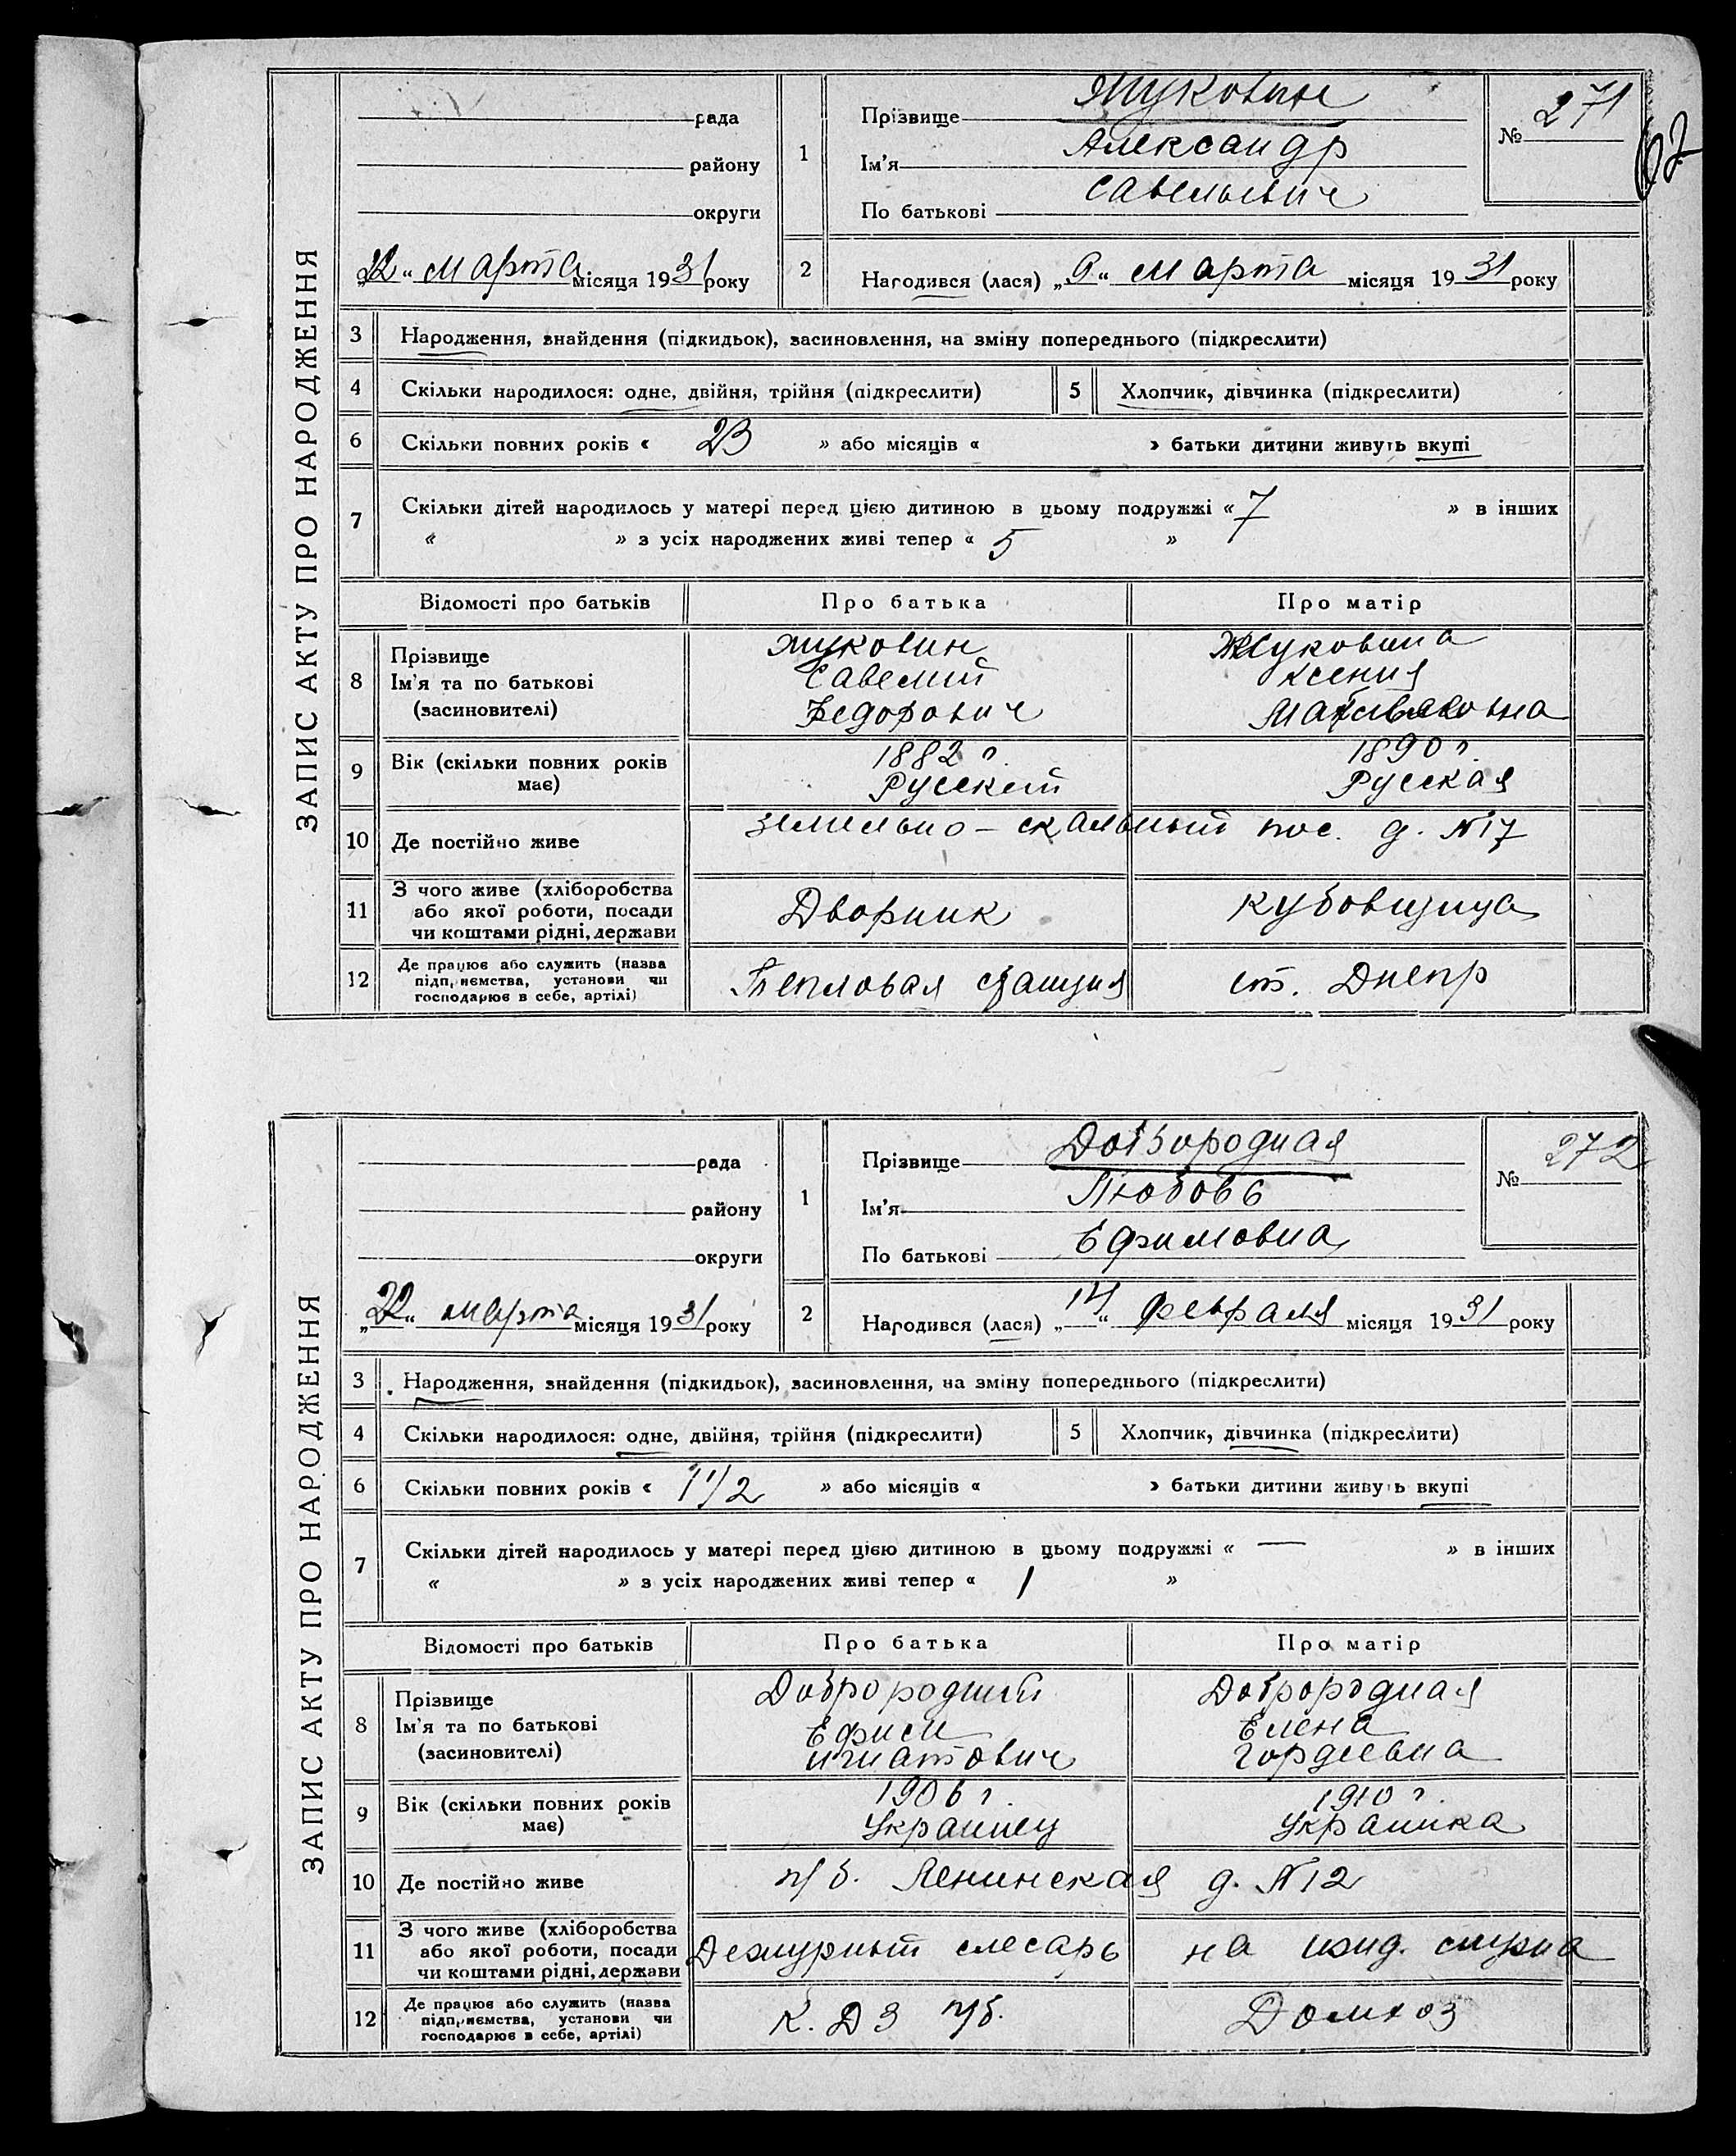 ЗАПИС АКТУ ПРО НАРОДЖЕННЯ
рада
району
округи
„22“ Марта місяця 1931 року
1
Прізвище Жуковин
Ім'я Александр
По батькові Савельевич
№ 271
2 Народився (лася) „9“ Марта місяця 1931 року
3 Народження, знайдення (підкидьок), засиновлення, на зміну попереднього (підкреслити)
4 Скільки народилося: одне, двійня, трійня (підкреслити)
5 Хлопчик, дівчинка (підкреслити)
6 Скільки повних років « 23 » або місяців « » батьки дитини живуть вкупі
7 Скільки дітей народилось у матері перед цією дитиною в цьому подружжі « 7 » в інших
« » з усіх народжених живі тепер « 5 »
Відомості про батьків Про батька Про матір
8 Прізвище Жуковин Жуковина
Ім'я та по батькові Савелий Ксения
(засновителі) Федорович
9 Вік (скільки повних років має) 1882 г. 1890 г.
Русский Русская
10 Де постійно живе Земельно - скальный пос. д. №17
11 З чого живе (хліборобства або якої роботи, посади чи коштами рідні, держави Дворник Кубовщица
12 Де працює або служить (назва підприємства, установи чи господарює в себе, артілі) Тепловая станция ст. Днепр
ЗАПИС АКТУ ПРО НАРОДЖЕННЯ
рада
району
округи
„22“ марта місяця 1931 року
1
Прізвище Добзородная
Ім'я Любовь
По батькові Ефимовна
№ 272
2 Народився (лася) „14“ февраля місяця 1931 року
3 Народження, знайдення (підкидьок), засиновлення, на зміну попереднього (підкреслити)
4 Скільки народилося: одне, двійня, трійня (підкреслити)
5 Хлопчик, дівчинка (підкреслити)
6 Скільки повних років « 1 1/2 » або місяців « » батьки дитини живуть вкупі
7 Скільки дітей народилось у матері перед цією дитиною в цьому подружжі « — » в інших
« » з усіх народжених живі тепер « 1 »
Відомості про батьків Про батька Про матір
8 Прізвище Доброродний Доброродная
Ім'я та по батькові Ефим Елена
(засиновителі) Игнатович Гордеевна
9 Вік (скільки повних років має) 1906 г. 1910 г.
Украинец Украинка
10 Де постійно живе п/б. Ленинская д. №12
11 З чого живе (хліборобства або якої роботи, посади чи коштами рідні, держави Дежурный слесарь на ижд. мужа
12 Де працює або служить (назва підприємства, установи чи господарює в себе, артілі) К. ДЗ п/б. Домхоз